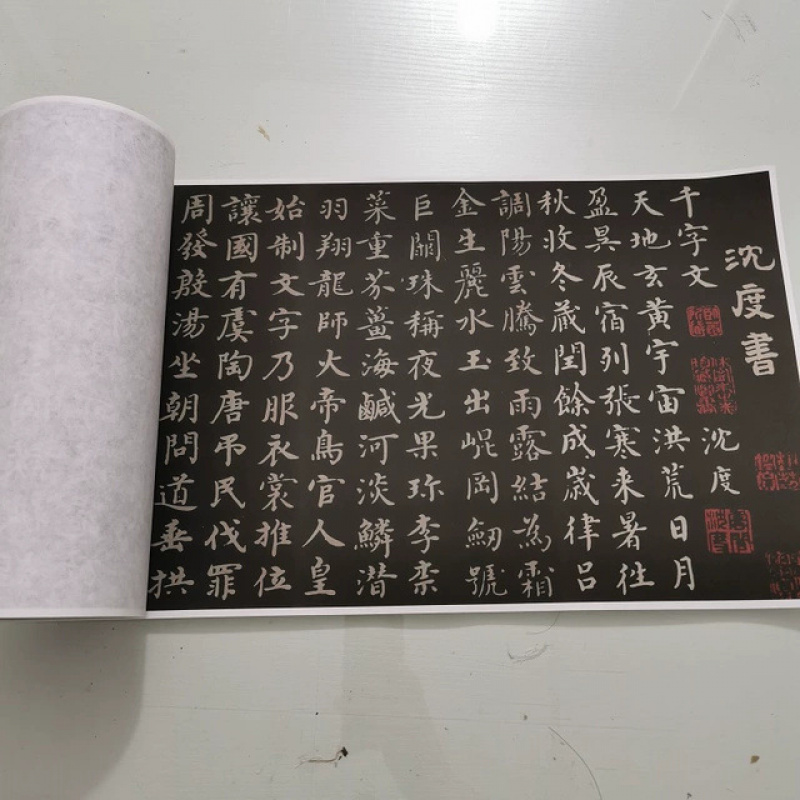 沈度書
千字文 沈度
天地玄黄宇宙洪荒日月
盈昃辰宿列張寒来暑往
秋收冬蔵閏餘成歲律吕
調陽雲騰致雨露結為霜
金生麗水玉出崐岡劒號
巨闕珠稱夜光果珎李柰
菜重芥薑海鹹河淡鱗潜
羽翔龍師火帝鳥官人皇
始制文字乃服衣裳推位
讓國有虞陶唐吊民伐罪
周發殷湯坐朝問道垂拱